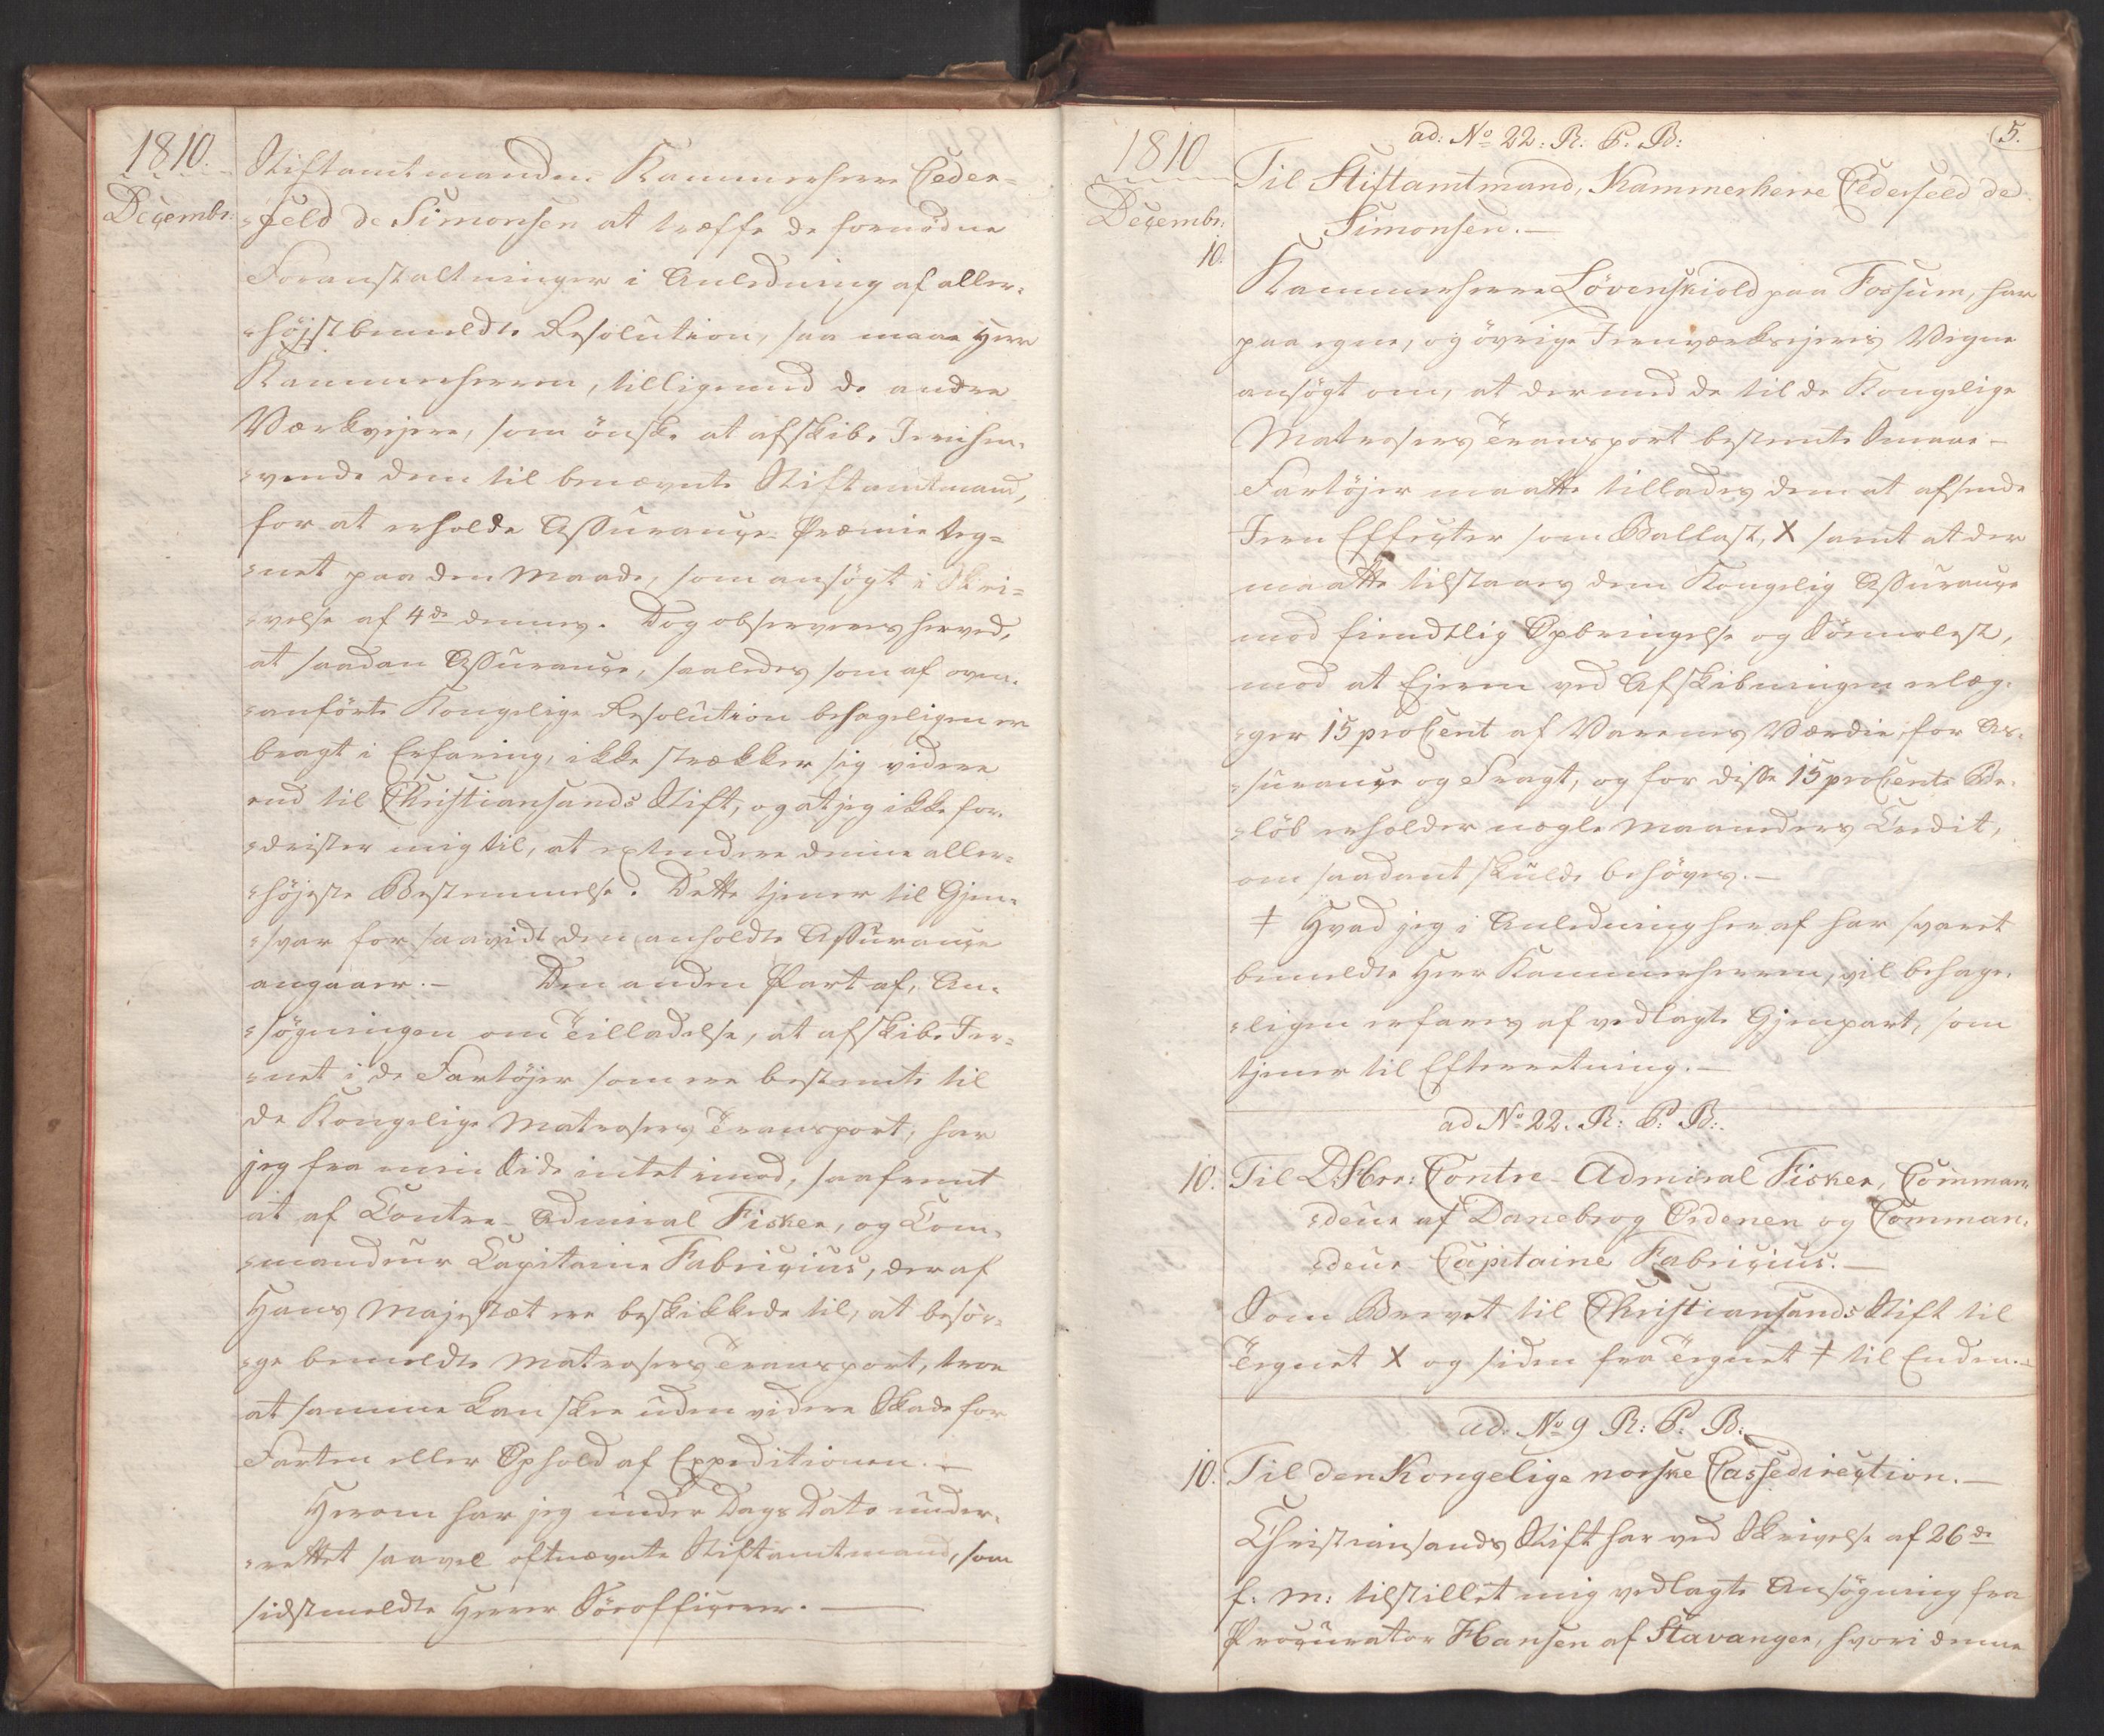 1810.
Decembr:
Stiftamtmanden Kammerherre Ceder=
=feld de Simonsen at træffe de fornödne
Foranstaltninger i Anledning af aller=
=höjstbemeldte Resolution, saa maae Herr
Kammerherren, tilligemed de andre
Værksejere, som önske at afskibe Jern hen=
=vende dem til benævnte Stiftamtmand,
for at erholde Assurance-Præmie teg=
=net paa den Maade, som ansögt i Skri=
=velse af 4de dennes. Dog observeres herved,
at saadan Assurance, saaledes som af oven=
=anförte Kongelige Resolution behageligen er
bragt i Erfaring, ikke strækker sig videre
end til Christiansands Stift, og at jeg ikke for=
=drister mig til, at extendere denne aller=
=höjeste Bestemmelse. Dette tjener til Gjen=
=svar for saavidt den anholdte Assurance
angaaer.— Den anden Part af, An=
=sögningen om Tilladelse, at afskibe Jer=
=net i de Fartöjer som ere bestemte til
de Kongelige Matrosers Transport, har
jeg fra min Side intet imod, saafremt
at af Contre-Admiral Fisker, og Com=
=mandeur Capitaine Fabricius, der af
Hans Majestæt ere beskikkede til, at besör=
=ge bemeldte Matrosers Transport, troe
at samme kan skee uden videre Skade for
Farten eller Ophold af Expeditionen.—
Herom har jeg under Dags Dato under=
=rettet saavel oftnævnte Stiftamtmand, som
sidstmeldte Herrer Söeofficerer.—
5.
1810
Decembr:
ad: No 22: R: P: B:
Til Stiftamtmand, Kammerherre Cederfeld de
Simonsen.—
10.
Kammerherre Lövenskiold paa Fossum, har
paa egne, og övrige Jernværksejeres Vegne
ansögt om, at der med de til de Kongelige
Matrosers Transport bestemte Smaae-
Fartöjer maatte tillades dem at afsende
Jern Effecter som Ballast, X samt at der
maatte tilstaaes dem Kongelig Assurance
mod fiendtlig Opbringelse og Sömolest,
mod at Ejeren ved Afskibningen erlæg=
=ger 15 proCent af Varenes Værdie, for As=
=surance og Fragt, og for disse 15 proCents Be=
=löb erholder nogle Maaneders Credit,
om saadant skulde behöves.—
‡ Hvad jeg i Anledning heraf har svaret
bemeldte Herr Kammerherren, vil behage=
=ligen erfares af vedlagte Gjenpart, som
tjener til Efterretning.—
ad No 22. R: P: B:
10. Til D: Hrr: Contre-Admiral Fisker, Comman=
=deur af Danebrog Ordenen og Comman=
=deur Capitaine Fabricius.—
Som Brevet til Christiansands Stift til
Tegnet X og siden fra Tegnet ‡ til Enden.—
ad. No 9 R: P: B:
10. Til den Kongelige norske Cassedirection.—
Christiansands Stift har ved Skrivelse af 26de
f: M: tilstillet mig vedlagte Ansögning fra
Procurator Hansen af Stavanger, hvori denne